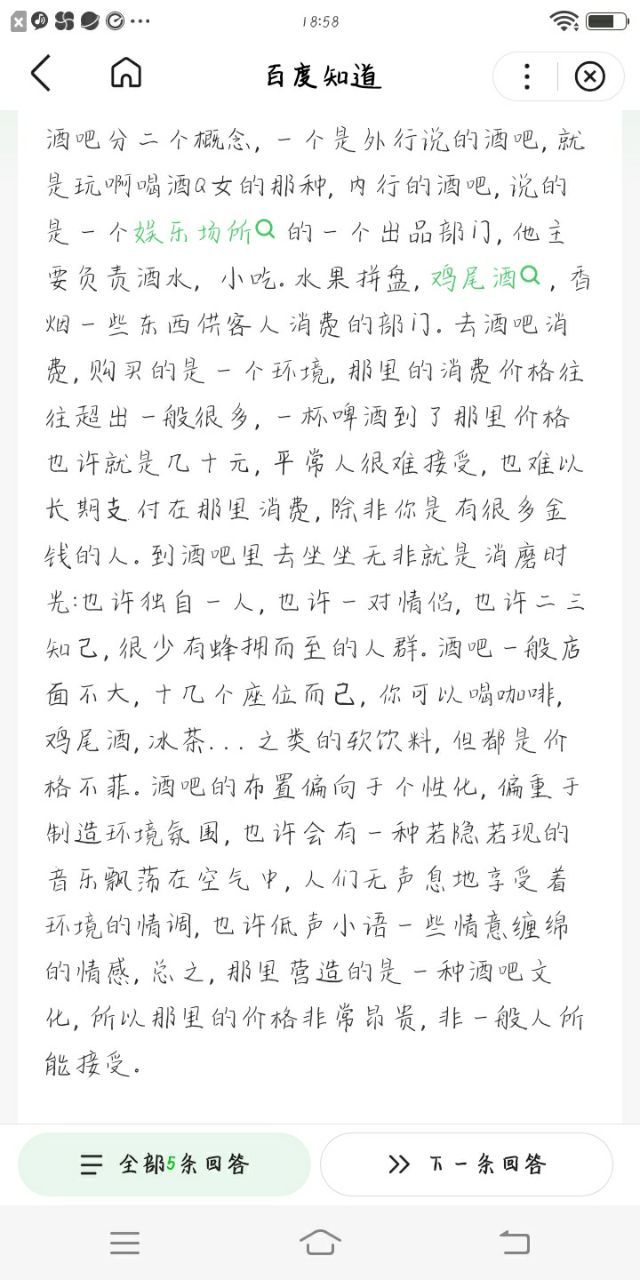 18:58
百度知道
酒吧分二个概念, 一个是外行说的酒吧, 就
是玩啊喝酒Q女的那种, 内行的酒吧, 说的
是一个娱乐场所 的一个出品部门, 他主
要负责酒水, 小吃. 水果拼盘, 鸡尾酒 , 香
烟一些东西供客人消费的部门. 去酒吧消
费, 购买的是一个环境, 那里的消费价格往
往超出一般很多, 一杯啤酒到了那里价格
也许就是几十元, 平常人很难接受, 也难以
长期支付在那里消费, 除非你是有很多金
钱的人. 到酒吧里去坐坐无非就是消磨时
光:也许独自一人, 也许一对情侣, 也许二三
知己, 很少有蜂拥而至的人群. 酒吧一般店
面不大, 十几个座位而已, 你可以喝咖啡,
鸡尾酒, 冰茶... 之类的软饮料, 但都是价
格不菲. 酒吧的布置偏向于个性化, 偏重于
制造环境氛围, 也许会有一种若隐若现的
音乐飘荡在空气中, 人们无声息地享受着
环境的情调, 也许低声小语一些情意缠绵
的情感, 总之, 那里营造的是一种酒吧文
化, 所以那里的价格非常昂贵, 非一般人所
能接受。
全部5条回答
下一条回答